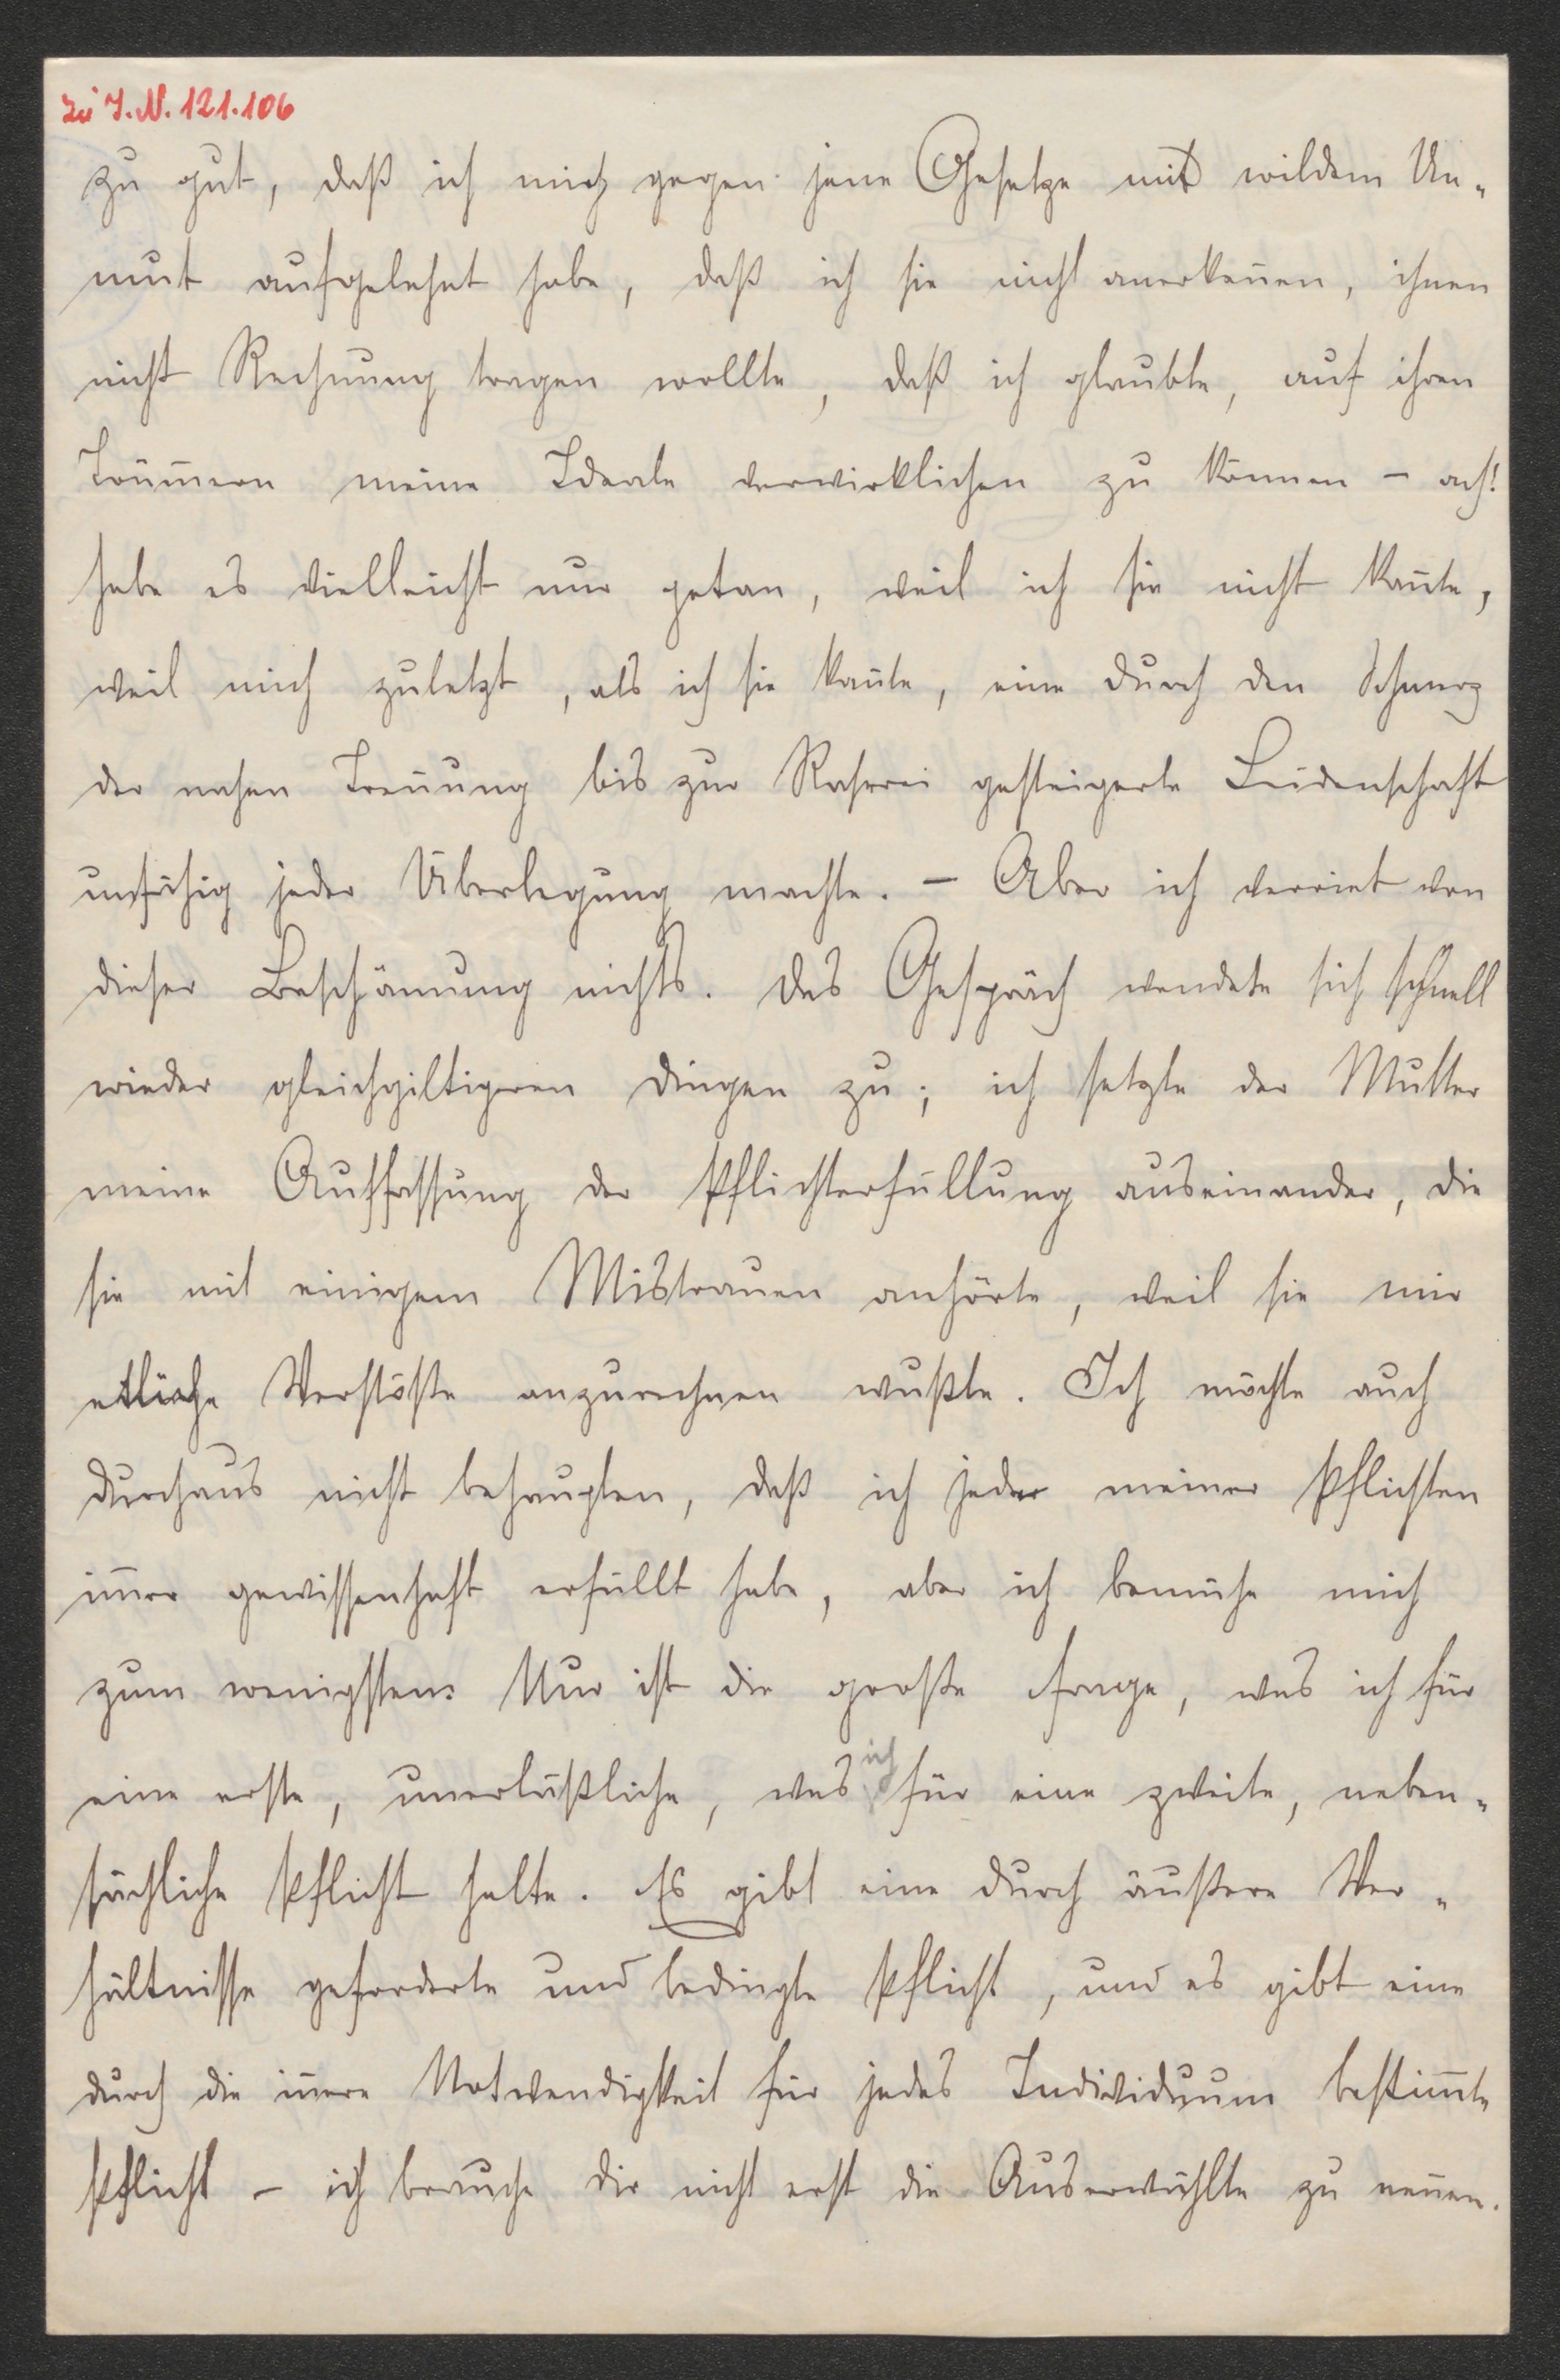 zu I.N. 121.106
zu gut, daß ich mich gegen jene Gesetze mit wildem Un-
mut aufgelehnt habe, daß ich sie nicht anerkeñen, ihnen
nicht Rechnung tragen wollte, daß ich glaubte, auf ihren
Trüm̄ern meine Ideale verwirklichen zu können – ach!
habe es vielleicht nur getan, weil ich sie nicht kañte,
weil mich zuletzt, als ich sie kañte, eine durch den Schmerz
der nahen Treñung bis zur Raserei gesteigerte Leidenschaft
unfähig jeder Überlegung machte. – Aber ich verriet von
dieser Beschämung nichts. Das Gespräch wendete sich schnell
wieder gleichgiltigeren Dingen zu; ich setzte der Mutter
meine Auffassung der Pflichterfüllung auseinander, die
sie mit einigem Mistrauen anhörte, weil sie mir
etliche Verstöße anzurechnen wußte. Ich möchte auch
durchaus nicht behaupten, daß ich jeder meiner Pflichten
im̄er gewissenhaft erfüllt habe, aber ich bemühe mich
zum wenigsten. Nur ist die große Frage, was ich für
eine erste, unerläßliche, was ich für eine zweite, neben-
sächliche Pflicht halte. Es gibt eine durch äußere Ver-
hältnisse geforderte und bedingte Pflicht, und es gibt eine
durch die iñere Notwendigkeit für jedes Individuum bestim̄te
Pflicht – ich brauche dir nicht erst die Auserwählte zu neñen.